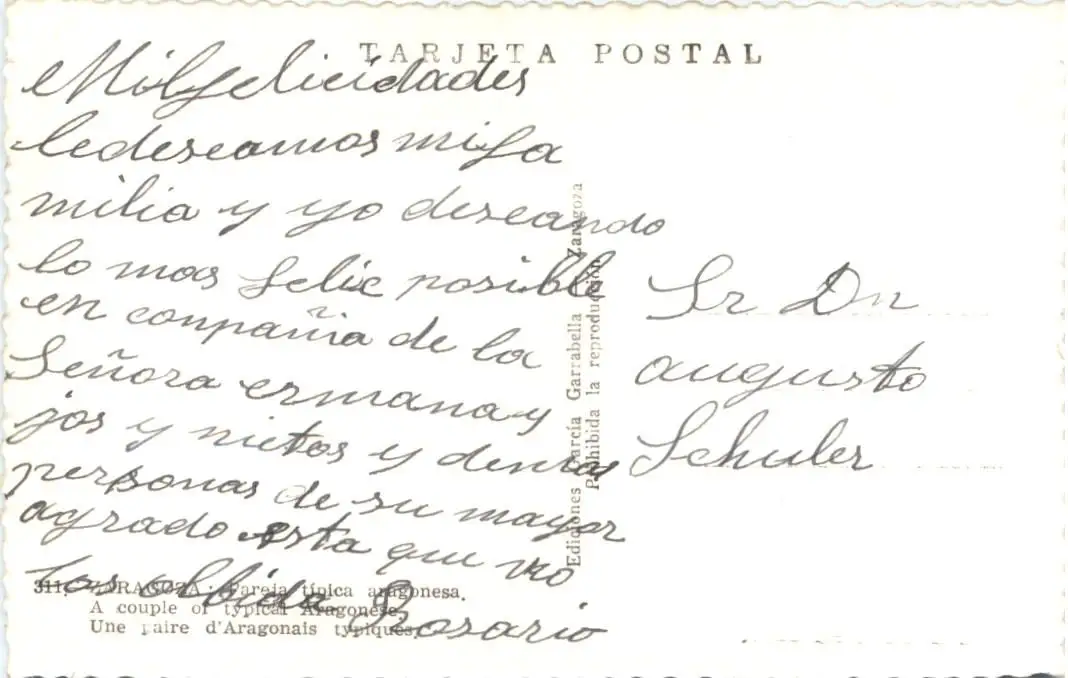 TARJETA POSTAL
Mil felicidades
le deseamos mi fa
milia y yo deseando
lo mas felic posible
en conpañia de la
Señora ermana y
jos y nietos y demas
personas de su mayor
agrado esta que no
los olbida Rosario
Sr Dn
augusto
Schuler
Ediciones García Garrabella Zaragoza
Prohibida la reproducción
311. ZARAGOZA: Pareja típica aragonesa.
A couple of typical Aragonese.
Une paire d'Aragonais typiques.